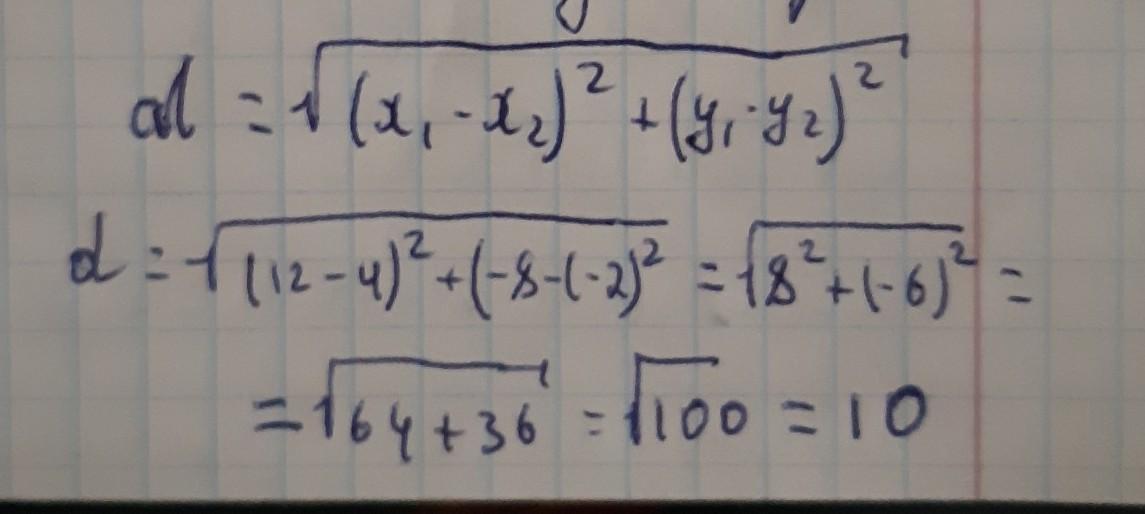 d = √(x₁ - x₂)² + (y₁ - y₂)²
d = √(12 - 4)² + (-8 - (-2)² = √8² + (-6)² =
= √64 + 36 = √100 = 10